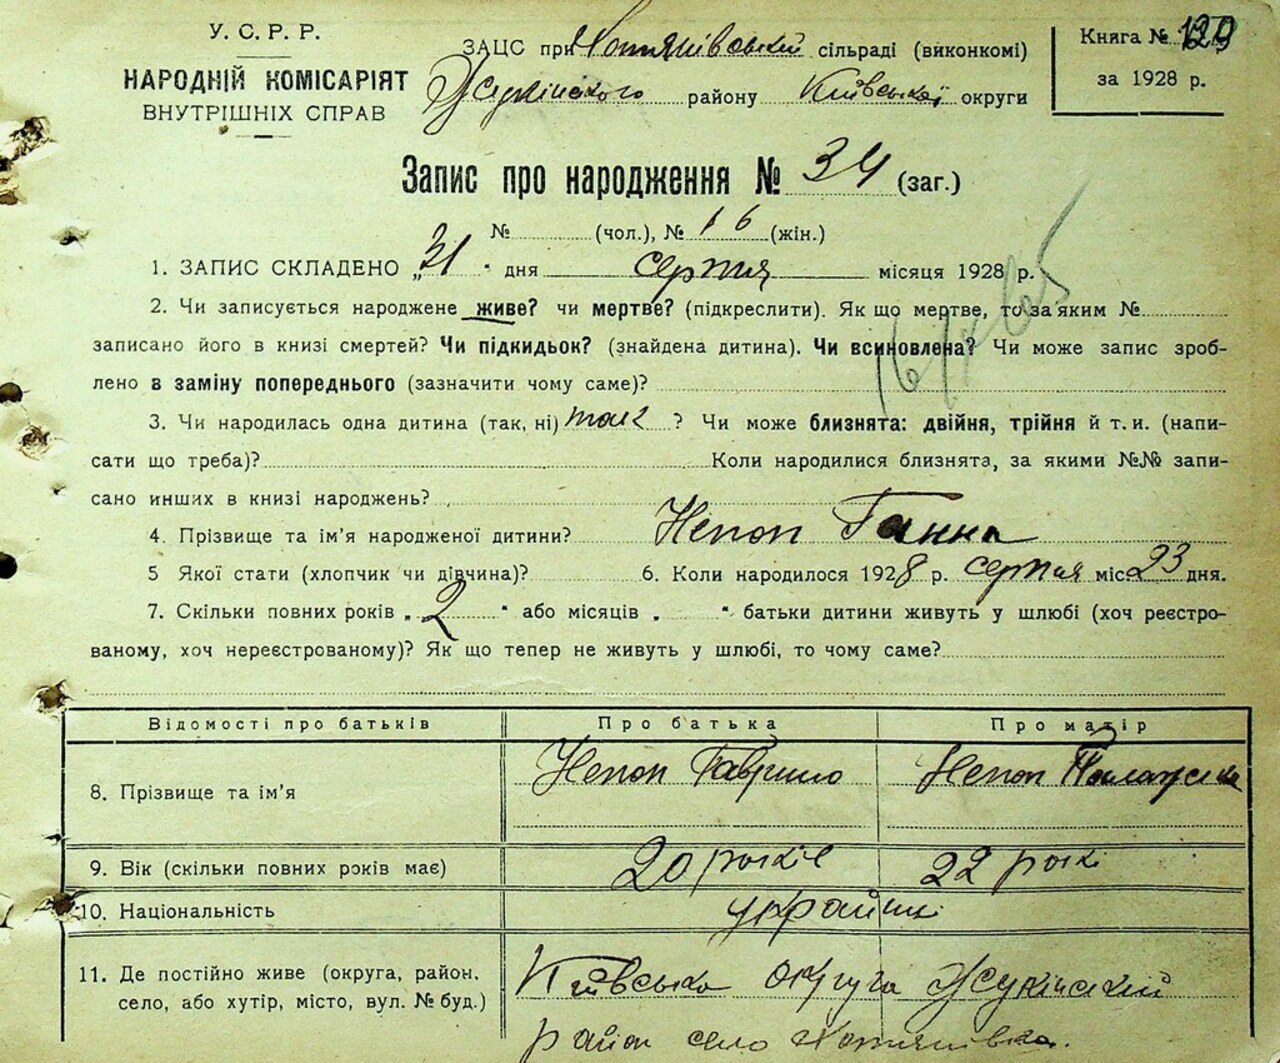 У. С. Р. Р.
НАРОДНІЙ КОМІСАРІЯТ
ВНУТРІШНІХ СПРАВ
ЗАЦС при Хотянівській сільраді (виконкомі)
Жукінського району Київської округи
Книга №
за 1928 р.
Запис про народження № 34 (заг.)
№ (чол.), № 16 (жін.)
1. ЗАПИС СКЛАДЕНО „31“ дня серпня місяця 1928 р.
2. Чи записується народжене живе? чи мертве? (підкреслити). Як що мертве, то за яким №
записано його в книзі смертей? Чи підкидьок? (знайдена дитина). Чи всиновлена? Чи може запис зроб-
лено в заміну попереднього (зазначити чому саме)?
3. Чи народилась одна дитина (так, ні) так ? Чи може близнята: двійня, трійня й т. и. (напи-
сати що треба)? Коли народилися близнята, за якими №№ запи-
сано инших в книзі народжень?
4. Прізвище та ім’я народженої дитини? Непоп Ганна
5 Якої стати (хлопчик чи дівчина)? 6. Коли народилося 1928 р. серпня міс. 23 дня.
7. Скільки повних років „2“ або місяців „ “ батьки дитини живуть у шлюбі (хоч реєстро-
ваному, хоч нереєстрованому)? Як що тепер не живуть у шлюбі, то чому саме?
Відомості про батьків Про батька Про матір
8. Прізвище та ім’я Непоп Гаврило Непоп
9. Вік (скільки повних років має) 20 років 22 роки
10. Національність українці
11. Де постійно живе (округа, район, село, або хутір, місто, вул. № буд.) Київська округа Жукінський
район село Хотянівка.